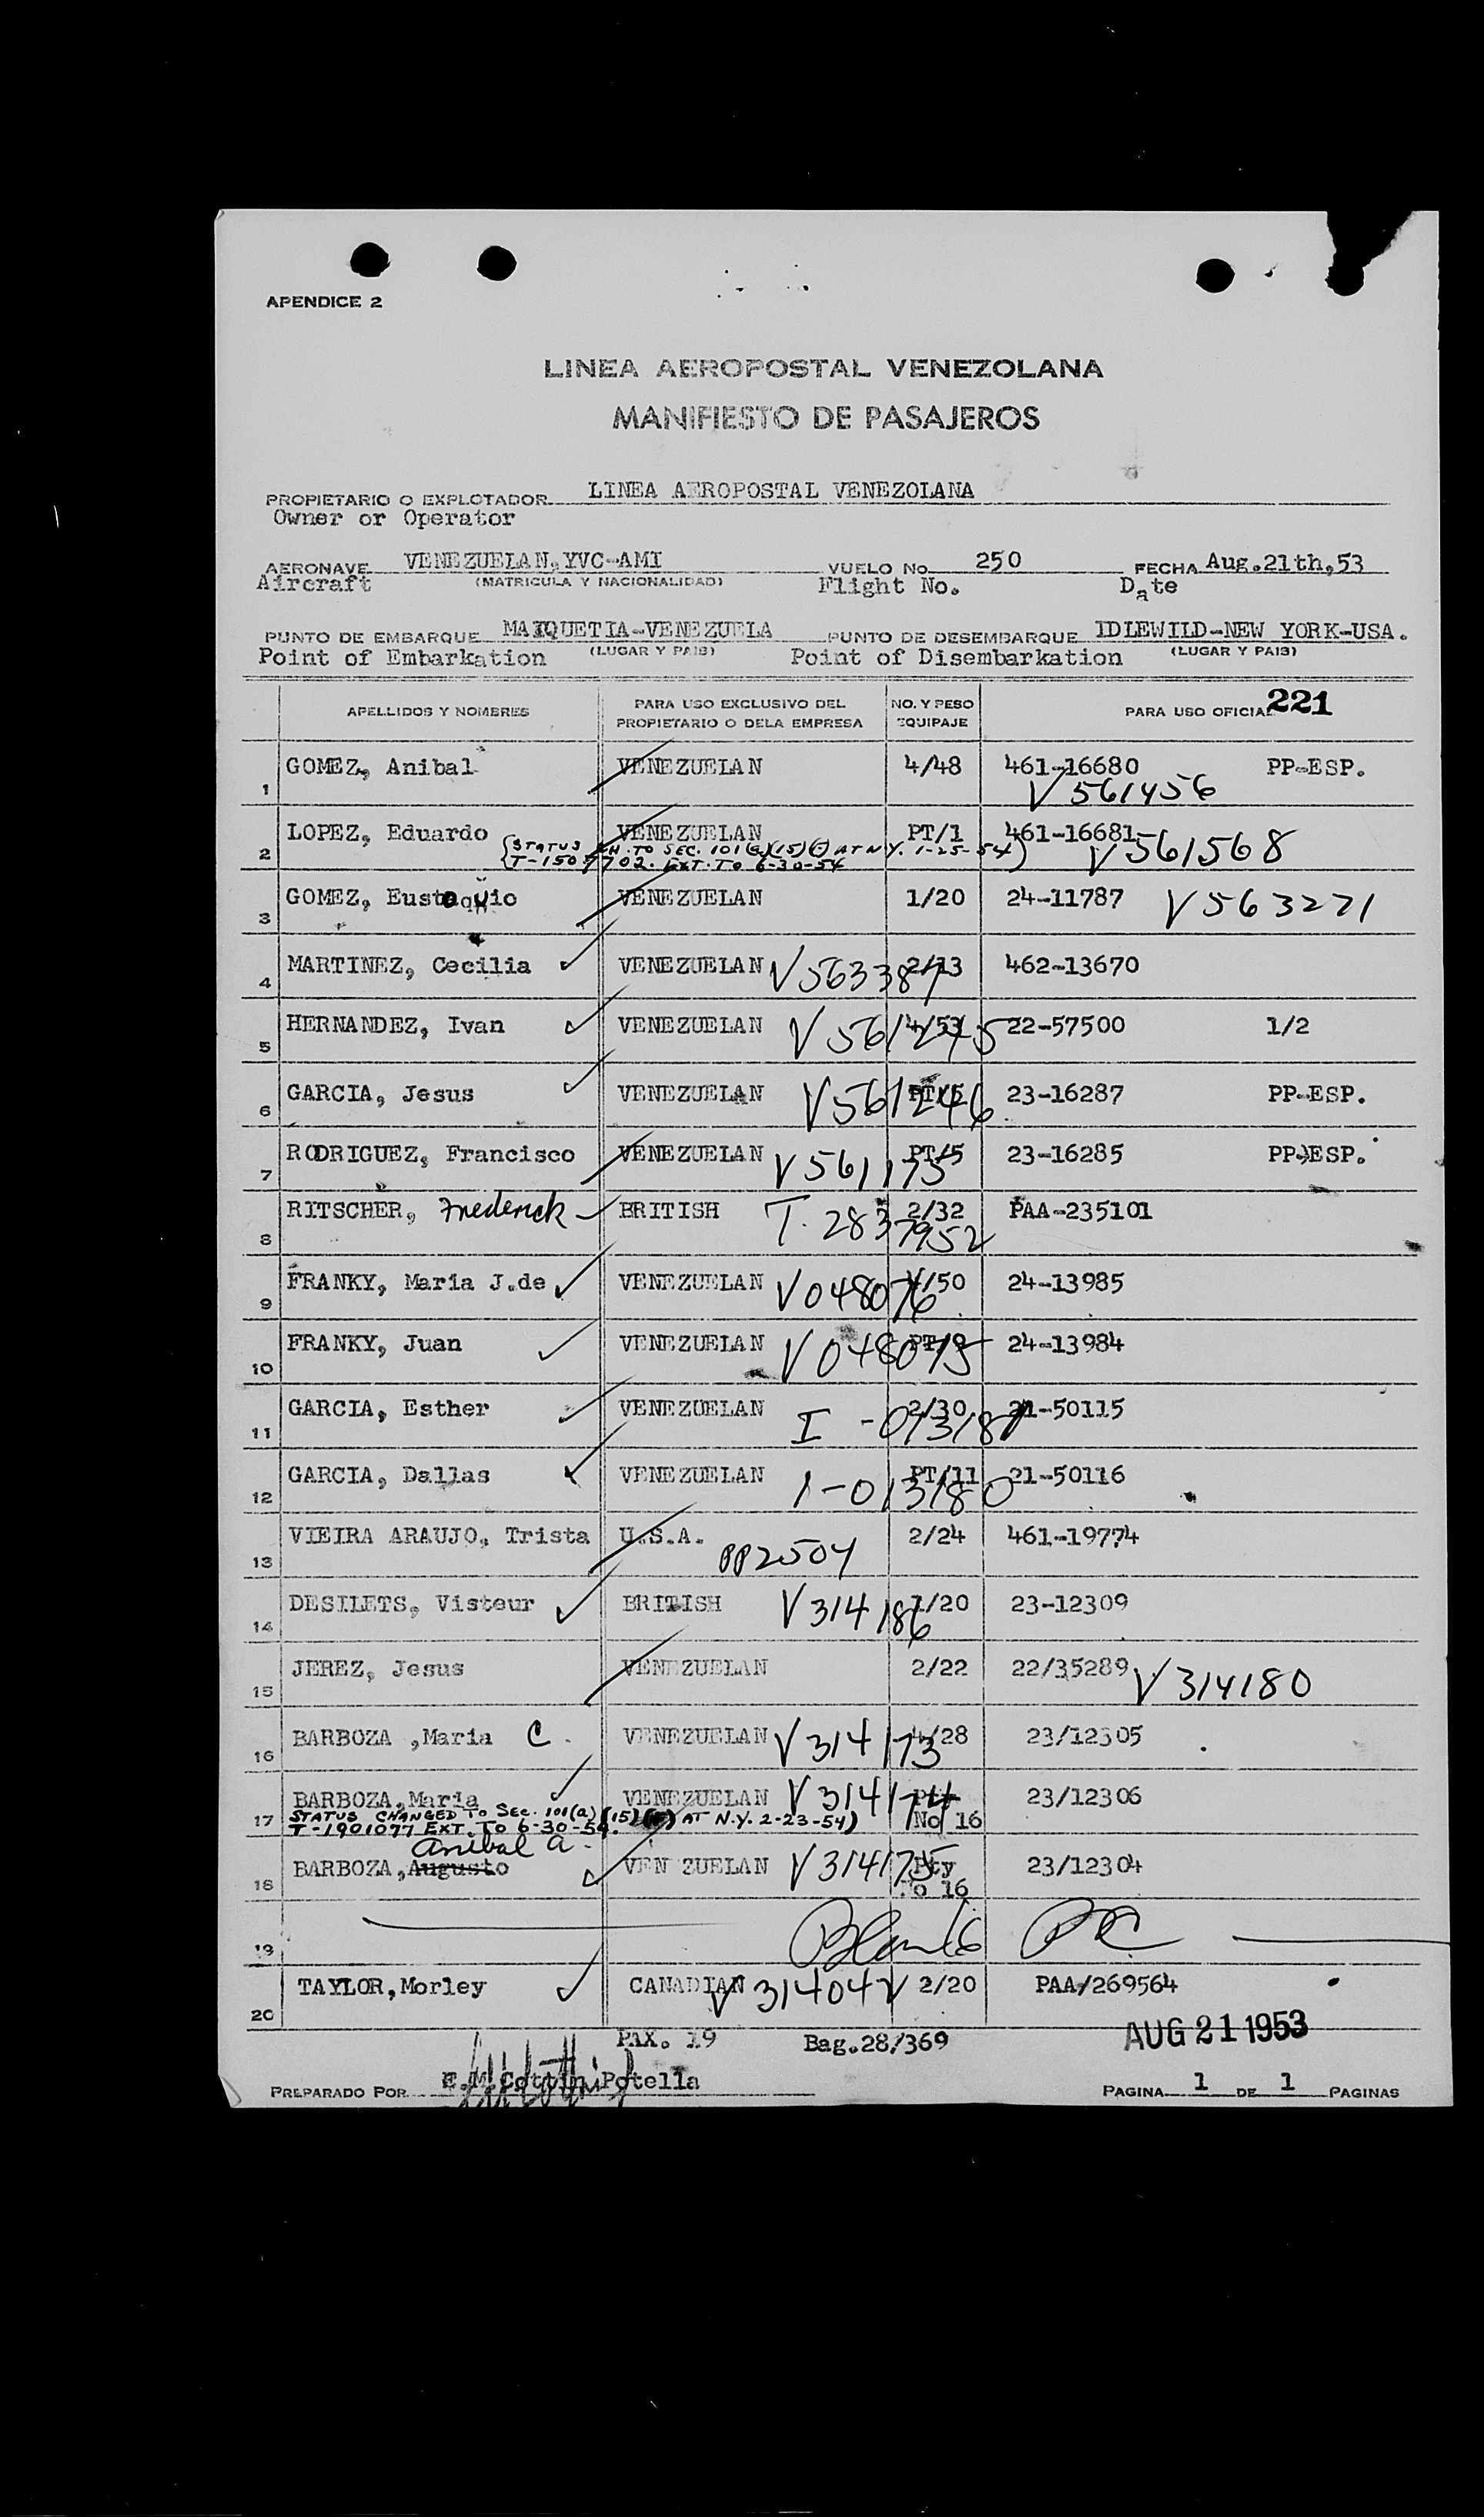 APENDICE 2
LINEA AEROPOSTAL VENEZOLANA
MANIFIESTO DE PASAJEROS
PROPIETARIO O EXPLOTADOR LINEA AEROPOSTAL VENEZOLANA
Owner or Operator
AERONAVE VENEZUELAN, YVC-AMI VUELO No. 250 FECHA Aug.21th,53
Aircraft (MATRICULA Y NACIONALIDAD) Flight No. Date
PUNTO DE EMBARQUE MAIQUETIA-VENEZUELA PUNTO DE DESEMBARQUE IDLEWILD-NEW YORK-USA.
Point of Embarkation (LUGAR Y PAIS) Point of Disembarkation (LUGAR Y PAIS)
APELLIDOS Y NOMBRES PARA USO EXCLUSIVO DEL PROPIETARIO O DE LA EMPRESA NO. Y PESO EQUIPAJE PARA USO OFICIAL 221
1 GOMEZ, Anibal VENEZUELAN 4/48 461-16680 PP-ESP.
V 561456
2 LOPEZ, Eduardo VENEZUELAN PT/1 461-16681 V561568
(STATUS CH. TO SEC. 101(a)(15)( ) AT N.Y. 1-25-54)
T-1507702. EXT. TO 6-30-54
3 GOMEZ, Eustaquio VENEZUELAN 1/20 24-11787 V563271
4 MARTINEZ, Cecilia VENEZUELAN V563387 2/13 462-13670
5 HERNANDEZ, Ivan VENEZUELAN V561245 4/53 22-57500 1/2
6 GARCIA, Jesus VENEZUELAN V561246 23-16287 PP-ESP.
7 RODRIGUEZ, Francisco VENEZUELAN V561175 PT/5 23-16285 PP-ESP.
8 RITSCHER, Frederick BRITISH T-2837952 2/32 PAA-235101
9 FRANKY, Maria J.de VENEZUELAN V048076 /50 24-13985
10 FRANKY, Juan VENEZUELAN V048075 PT/9 24-13984
11 GARCIA, Esther VENEZUELAN I-013181 2/30 21-50115
12 GARCIA, Dallas VENEZUELAN I-013180 PT/11 21-50116
13 VIEIRA ARAUJO, Trista U.S.A. PP2504 2/24 461-19774
14 DESILETS, Visteur BRITISH V314186 1/20 23-12309
15 JEREZ, Jesus VENEZUELAN 2/22 22/35289 V314180
16 BARBOZA ,Maria C. VENEZUELAN V314173 /28 23/12305
17 BARBOZA,Maria VENEZUELAN V314174 No 16 23/12306
STATUS CHANGED TO SEC. 101(a)(15)( ) AT N.Y. 2-23-54)
T-1901077 EXT. TO 6-30-54.
Anibal A.
18 BARBOZA,Augusto VEN ZUELAN V314175 Pty .o 16 23/12304
19
20 TAYLOR,Morley CANADIAN V314042 2/20 PAA/269564
PAX. 19 Bag.28/369 AUG 21 1953
PREPARADO POR E.M.Cottin Potella PAGINA 1 DE 1 PAGINAS